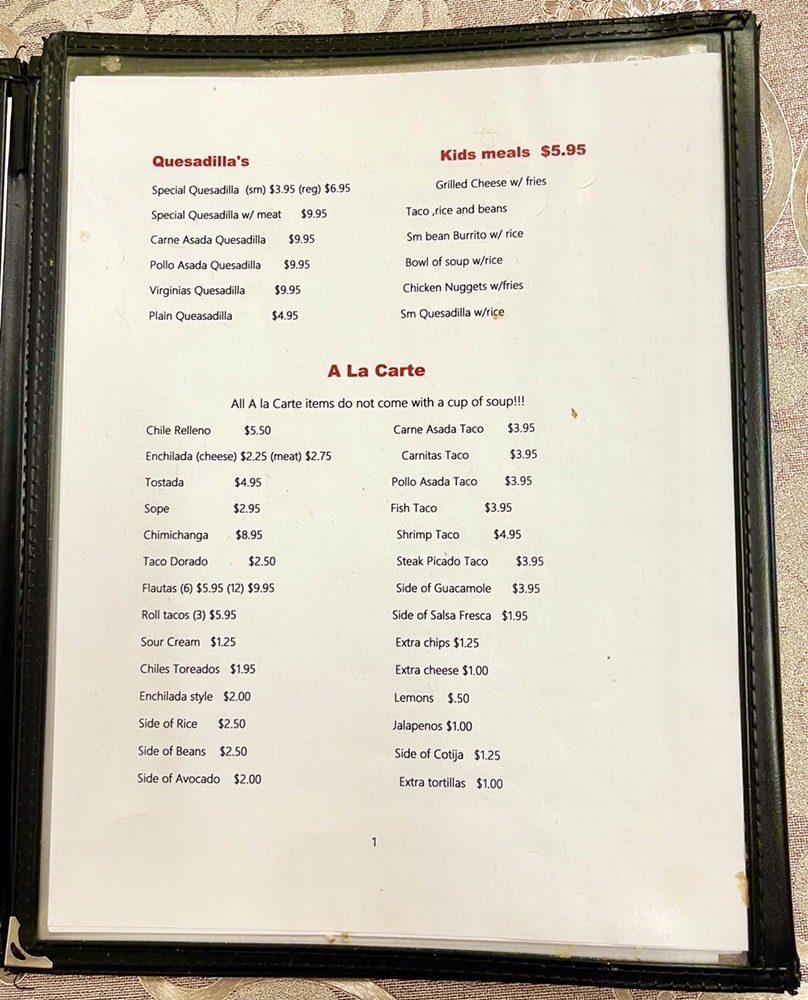 Quesadilla's
Special Quesadilla (sm) $3.95 (reg) $6.95
Special Quesadilla w/ meat $9.95
Carne Asada Quesadilla $9.95
Pollo Asada Quesadilla $9.95
Virginias Quesadilla $9.95
Plain Queasadilla $4.95
Kids meals $5.95
Grilled Cheese w/ fries
Taco ,rice and beans
Sm bean Burrito w/ rice
Bowl of soup w/rice
Chicken Nuggets w/fries
Sm Quesadilla w/rice
A La Carte
All A la Carte items do not come with a cup of soup!!!
Chile Relleno $5.50
Enchilada (cheese) $2.25 (meat) $2.75
Tostada $4.95
Sope $2.95
Chimichanga $8.95
Taco Dorado $2.50
Flautas (6) $5.95 (12) $9.95
Roll tacos (3) $5.95
Sour Cream $1.25
Chiles Toreados $1.95
Enchilada style $2.00
Side of Rice $2.50
Side of Beans $2.50
Side of Avocado $2.00
Carne Asada Taco $3.95
Carnitas Taco $3.95
Pollo Asada Taco $3.95
Fish Taco $3.95
Shrimp Taco $4.95
Steak Picado Taco $3.95
Side of Guacamole $3.95
Side of Salsa Fresca $1.95
Extra chips $1.25
Extra cheese $1.00
Lemons $.50
Jalapenos $1.00
Side of Cotija $1.25
Extra tortillas $1.00
1